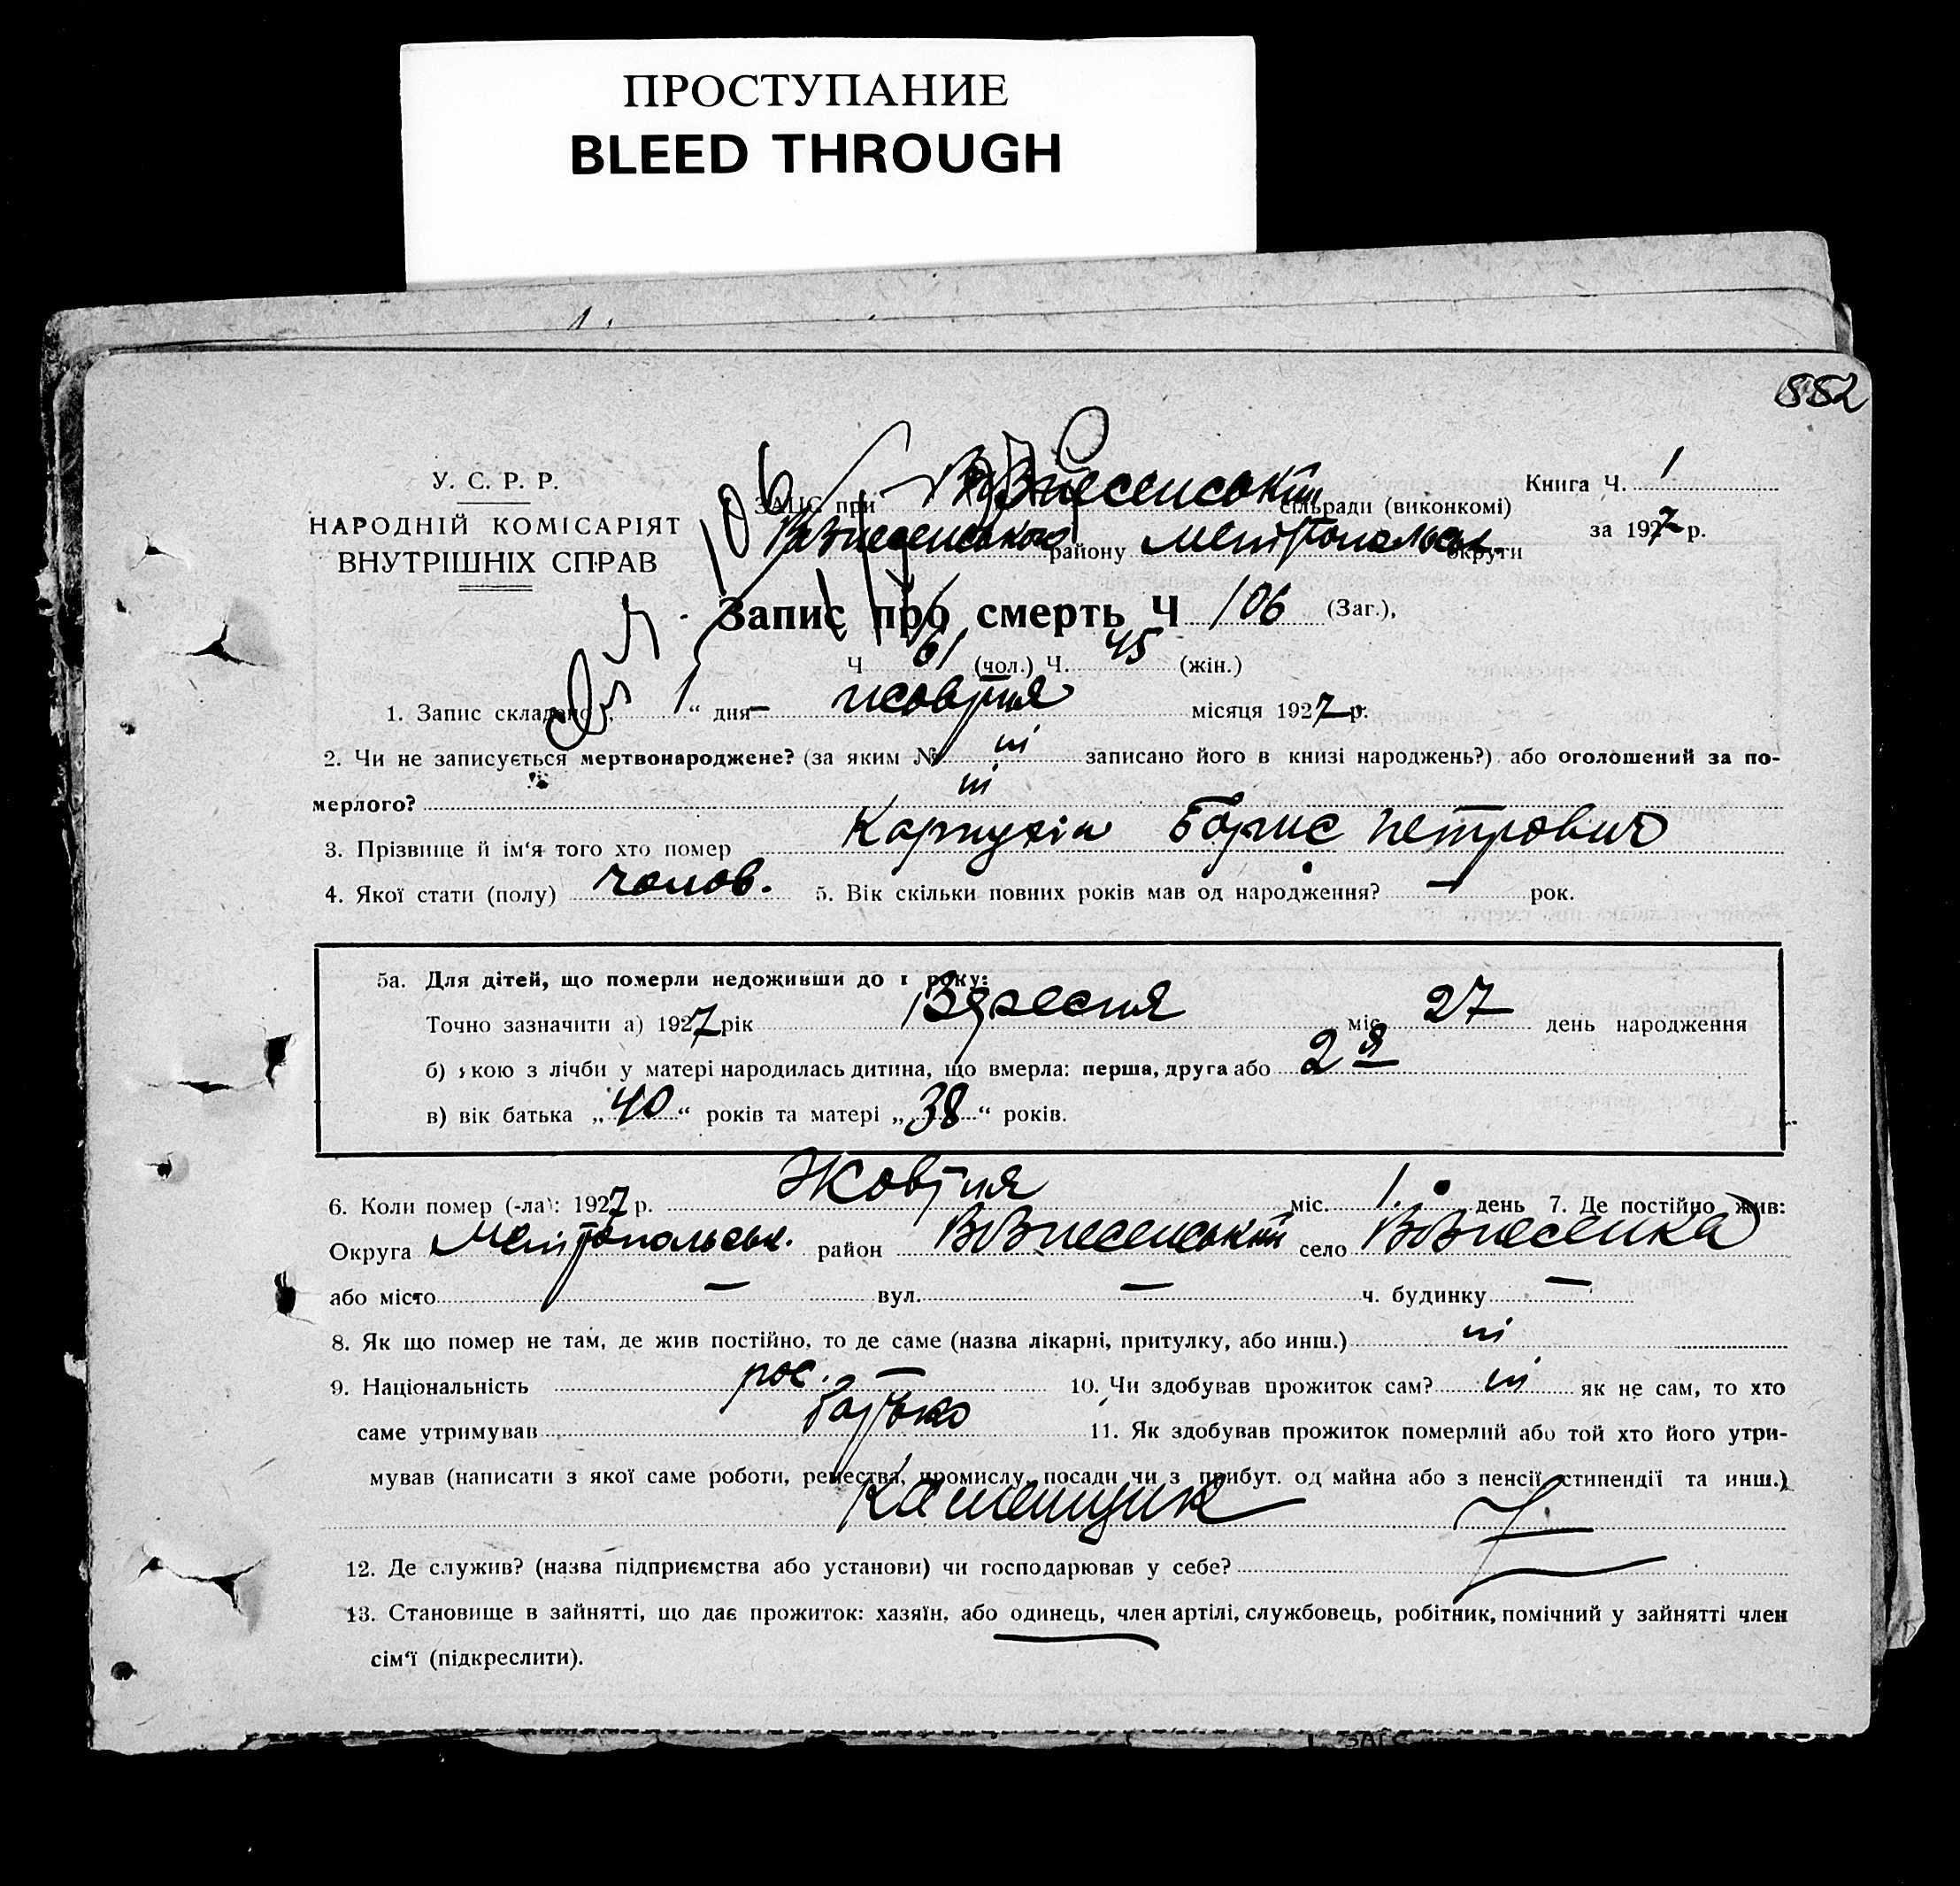 ПРОСТУПАНИЕ
BLEED THROUGH
882
У. С. Р. Р.
НАРОДНІЙ КОМІСАРІЯТ
ВНУТРІШНІХ СПРАВ
ЗАГС при Вознесенській сільради (виконкомі)
Вознесенського району Мелітопольськ. округи
Книга Ч. 1
за 1927 р.
106
Запис про смерть Ч 106 (Заг.),
Ч 61 (чол.) Ч. 45 (жін.)
1. Запис складено „ 1 “ дня жовтня місяця 1927 р.
2. Чи не записується мертвонароджене? (за яким № ні записано його в книзі народжень?) або оголошений за по-
мерлого? ні
3. Прізвище й ім‘я того хто помер Карпухін Борис Петрович
4. Якої стати (полу) чолов. 5. Вік скільки повних років мав од народження? — рок.
5а. Для дітей, що померли недоживши до 1 року:
Точно зазначити а) 1927 рік Вересня міс. 27 день народження
б) якою з лічби у матері народилась дитина, що вмерла: перша, друга або 2 я
в) вік батька „ 40 “ років та матері „ 38 “ років.
6. Коли помер (-ла): 1927 р. Жовтня міс. 1 день 7. Де постійно жив:
Округа Мелітопольськ. район Вознесенський село Вознесенка
або місто — вул. — ч. будинку —
8. Як що помер не там, де жив постійно, то де саме (назва лікарні, притулку, або инш.) ні
9. Національність рос. 10. Чи здобував прожиток сам? ні як не сам, то хто
саме утримував батько 11. Як здобував прожиток померлий або той хто його утри-
мував (написати з якої саме роботи, ремества, промислу, посади чи з прибут. од майна або з пенсії стипендії та инш.)
Каменщик
12. Де служив? (назва підприємства або установи) чи господарював у себе?
13. Становище в зайнятті, що дає прожиток: хазяїн, або одинець, член артілі, службовець, робітник, помічний у зайнятті член
сім‘ї (підкреслити).